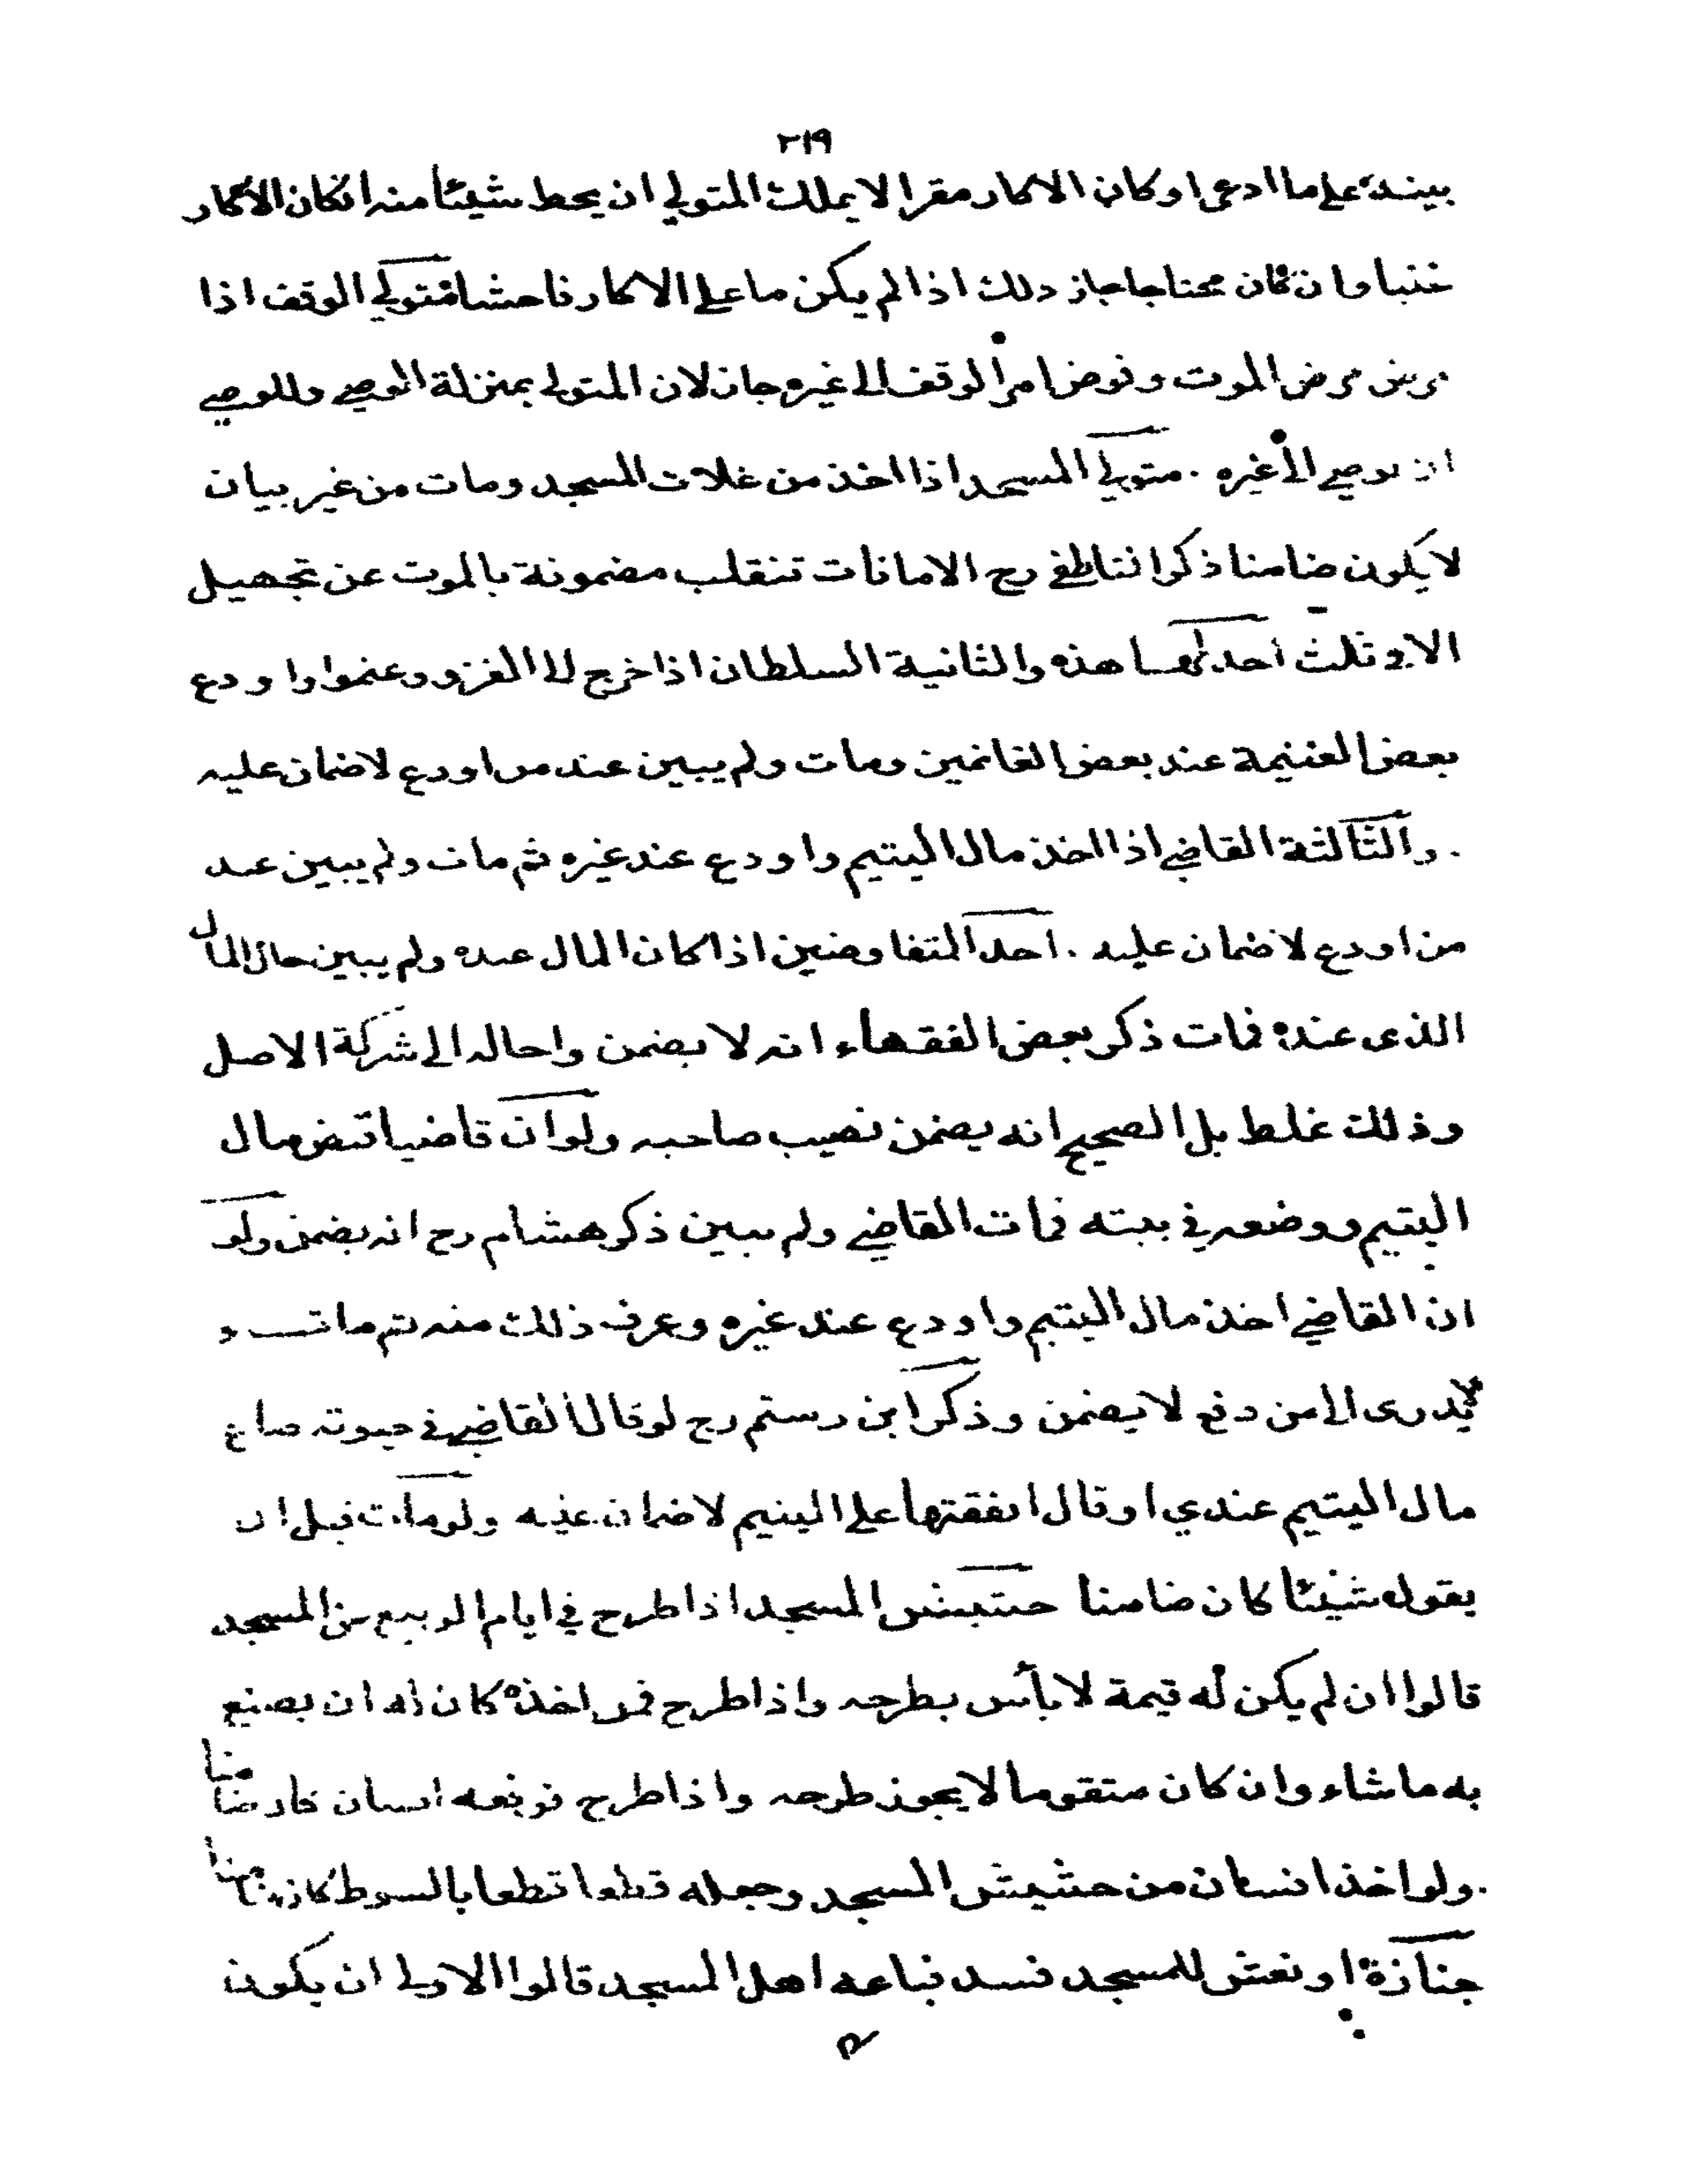 ٢١٩
بينة على ما ادعى او كان الاكار مقرا لا يملك المتولي ان يحط شيئا منه انكان الاكار
غنيا وان كان محتاجا جاز ذلك اذا لم يكن ما على الاكار فاحشا متولي الوقف اذا
مرض مرض الموت وفوض امر الوقف الى غيره جاز لان المتولى بمنزلة الوصي وللوصي
ان يوصي الى غيره . متولي المسجد اذا اخذ من غلات المسجد ومات من غير بيان
لا يكون ضامنا ذكر الناطفي رح الامانات تنقلب مضمونة بالموت عن تجهيل
الا في ثلث احداها هذه والثانية السلطان اذا خرج الى الغزو وغنموا واودع
بعض الغنيمة عند بعض الغانمين ومات ولم يبين عند من اودع لا ضمان عليه
. والثالثة القاضي اذا اخذ مال اليتيم واودع عند غيره ثم مات ولم يبين عند
من اودع لا ضمان عليه . احد المتفاوضين اذا كان المال عنده ولم يبين حال المال
الذى عنده فمات ذكر بعض الفقهاء انه لا يضمن واحاله الى شركة الاصل
وذلك غلط بل الصحيح انه يضمن نصيب صاحبه ولو ان قاضيا قبض مال
اليتيم ووضعه في بيته فمات القاضي ولم يبين ذكر هشام رح انه يضمن ولو
ان القاضي اخذ مال اليتيم واودع عند غيره وعرف ذلك منه ثم مات و
لا يدرى الى من دفع لا يضمن وذكر ابن رستم رح لو قال القاضي في حيوته ضاع
مال اليتيم عندي او قال انفقتها على اليتيم لا ضمان عليه ولو مات قبل ان
يقول شيئا كان ضامنا حشيش المسجد اذا طرح في ايام الربيع من المسجد
قالوا ان لم يكن له قيمة لا بأس بطرحه واذا طرح فمن اخذه كان له ان يصنع
به ما شاء وان كان متقوما لا يجوز طرحه واذا طرح فرفعه انسان كان ضامنا
. ولو اخذ انسان من حشيش المسجد وجعله قطعا قطعا بالسوط كان ضامنا
جنازة او نعش للمسجد فسد فباعه اهل المسجد قالوا الاولى ان يكون